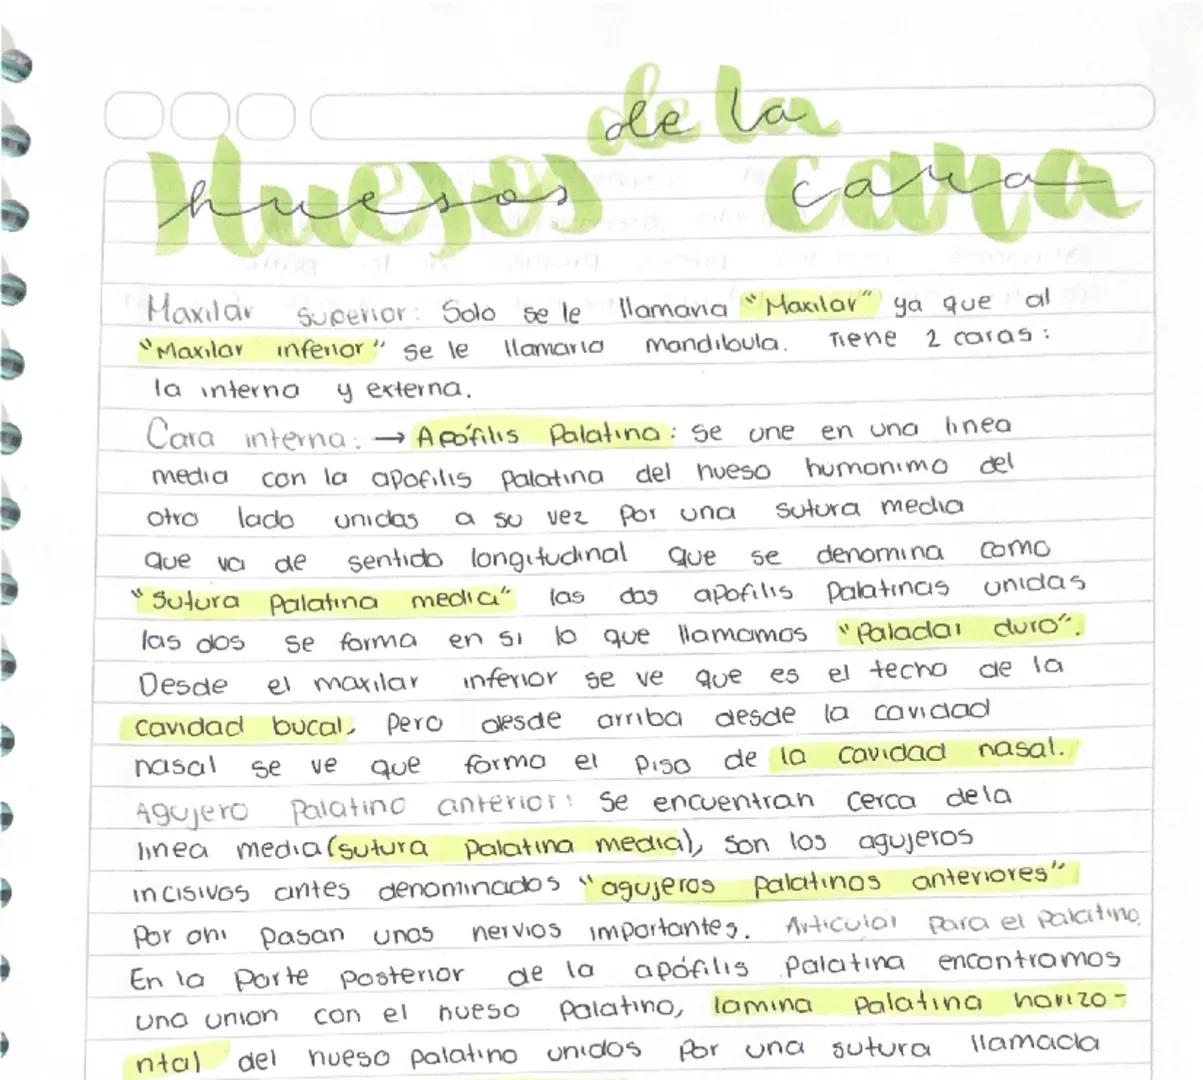 Huesos de la cara
huesos de la cara
Maxilar superior: Solo se le llamaria "Maxilar" ya que al
"Maxilar inferior" se le llamaria mandibula. Tiene 2 caras:
la interna y externa.
Cara interna: → Apófilis Palatina: Se une en una linea
media con la apofilis palatina del hueso humonimo del
otro lado unidas a su vez por una sutura media
que va de sentido longitudinal que se denomina como
"Sutura Palatina media" las dos apofilis Palatinas unidas
las dos se forma en si lo que llamamos "Paladar duro".
Desde el maxilar inferior se ve que es el techo de la
cavidad bucal, Pero desde arriba desde la cavidad
nasal se ve que forma el piso de la cavidad nasal.
Agujero Palatino anterior: Se encuentran cerca dela
linea media (sutura palatina media), son los agujeros
incisivos antes denominados "agujeros palatinos anteriores"
Por ahi pasan unos nervios importantes. Articular para el palatino.
En la parte posterior de la apófilis palatina encontramos
una union con el hueso palatino, lamina palatina horizo-
ntal del hueso palatino unidos por una sutura llamada